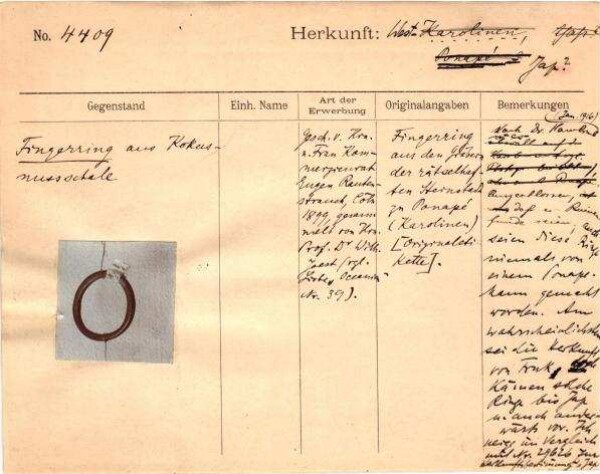 No. 4409
Herkunft: West-Karolinen, Yap?
Ponapé Jap?
Gegenstand
Einh. Name
Art der Erwerbung
Originalangaben
Bemerkungen
(Jan. 1916)
Fingerring aus Kokus-
nussschale
Gesch. v. Hrn.
u. Frau Kom-
merzienrat
Eugen Rauten-
strauch, Cöln
1899, gesam-
melt von Hrn.
Prof. Dr. Wilh.
Joest (vgl.
Oceanien
Nr. 39).
Fingerring
aus den Gräbern
der rätselhaf-
ten Steinstadt
zu Ponapé
(Karolinen)
[Originaleti-
kette].
Nach Dr. Hambruch
auf
seien diese Ringe
niemals von
einem Ponape-
mann gemacht
worden. Am
wahrscheinlichsten
sei die Herkunft
von Truk,
kämen solche
Ringe bis Jap
u. auch ander-
wärts vor. Ich
im Vergleich
mit Nr. 29626 zur
Jap.